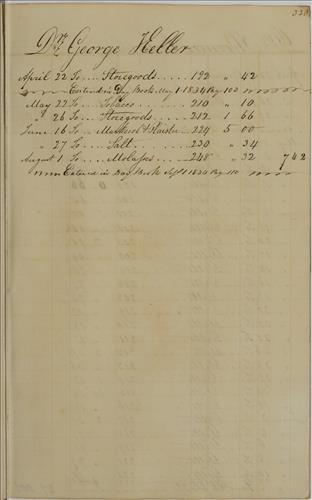 Dr. George Heller
April 22 To .... Storegoods ..... 192 " 42
Entered in Day Book May 1. 1834 Pag 103
May 22 To .... Tobacco ..... 210 " 10
" 26 To .... Storegoods ..... 212 1 66
June 16 To .... Mackerel & ..... 224 5 00
" 27 To .... Salt ..... 230 " 34
August 1 To .... Molasses ..... 248 " 32 7 42
Entered in Day Book Sept 1 1834 Pag 110